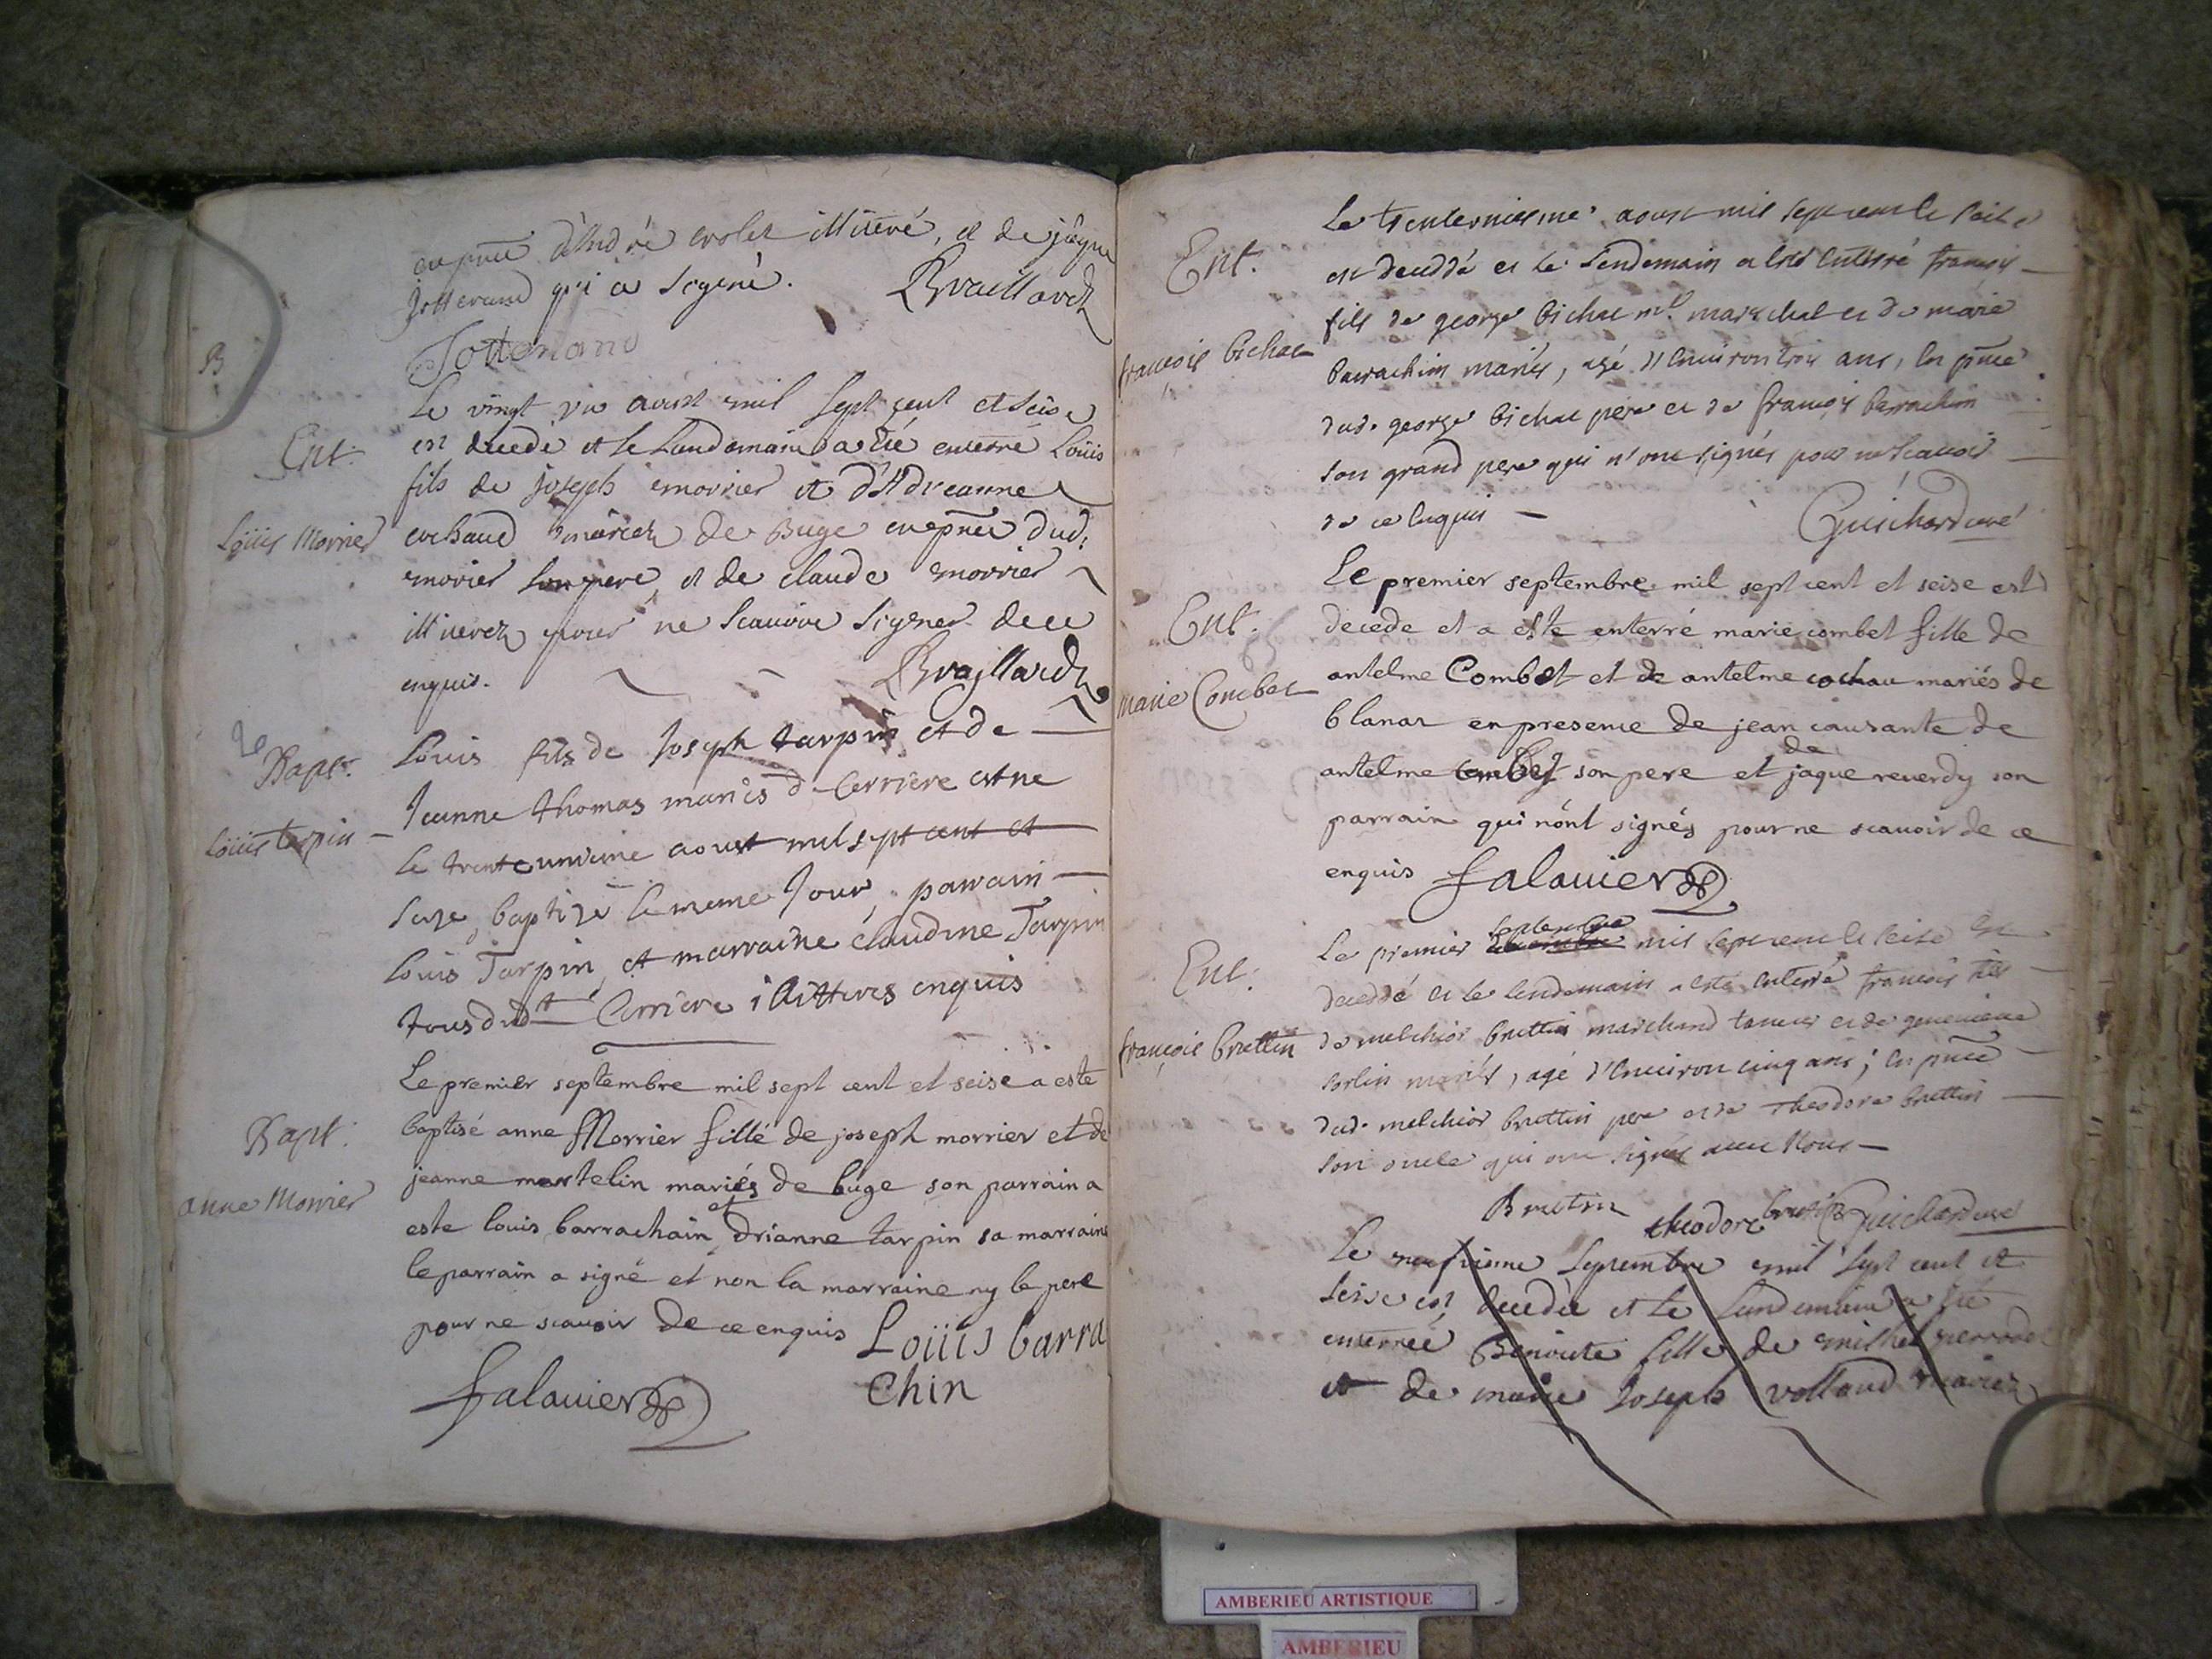 en pnce d'André crolet illitéré, et de jâque
Jotterand qui a signé. Bvaillardz
Jotterand
B
Ent.
Loüis Morrier
Le vingt aoust mil sept cent et seise
est decedé et le Landemain a été enterré Loüis
fils de joseph morrier et d'Adreanne
cochaud mariez de Buge en pnce dud.
morier son pere, et de claude morrier
illiterez pour ne scauoir signer de ce
enquis. Bvaillardz
Bapt.
Loüis tarpin
Louis fils de Joseph tarpin et de
Jeanne thomas mariés d Cerriere est ne
le trente unieme aoust mil sept cent et
seze, baptizé le meme Jour, parrain
Louis Tarpin, et marraine claudine Tarpin
tous dudt Cerriere illitteres enquis
Bapt.
anne Morrier
Le premier septembre mil sept cent et seise a este
baptisé anne Morrier fille de joseph morrier et de
jeanne martelin mariés de buge son parrain a
este louis barrachain et drianne tarpin sa marraine
le parrain a signé et non la marraine ny le pere
pour ne scauoir de ce enquis Loüis barra
chin
falauier
Ent.
françois bichat
Le trenteuniesme aoust mil sept cent et seise
est deceddé et le lendemain a esté enterré françois
fils de george bichat md. mareschal et de marie
barrachin mariés, agé d'enuiron trois ans, en pnce
dud. george bichat pere et de françois barrachin
son grand pere qui n'ont signés pour ne scauoir
de ce enquis Guichard curé
Ent.
marie Combet
Le premier septembre mil sept cent et seise est
decede et a este enterré marie combet fille de
antelme Combet et de antelme cochau mariés de
blanas en presence de jean causante de
antelme combet son pere et de jaque reuerdy son
parrain qui n'ont signés pour ne scauoir de ce
enquis falauier
Ent.
françois bruttin
Le premier septembre mil sept cent et seise est
deceddé et le lendemain a esté enterré françois fils
de melchior bruttin marchand taneur et de geneuieue
sorlin mariés, agé d'enuiron cinq ans; en pnce
dud. melchior bruttin pere et de theodore bruttin
son oncle qui ont signés auec Nous
Brutin theodore brutin Guichard curé
Le neufvieme septembre mil sept cent et
seise est decedée et le Landemain a été
enterreé Benoite fille de michel
et de marie Joseph volland mariez
AMBERIEU ARTISTIQUE
AMBERIEU